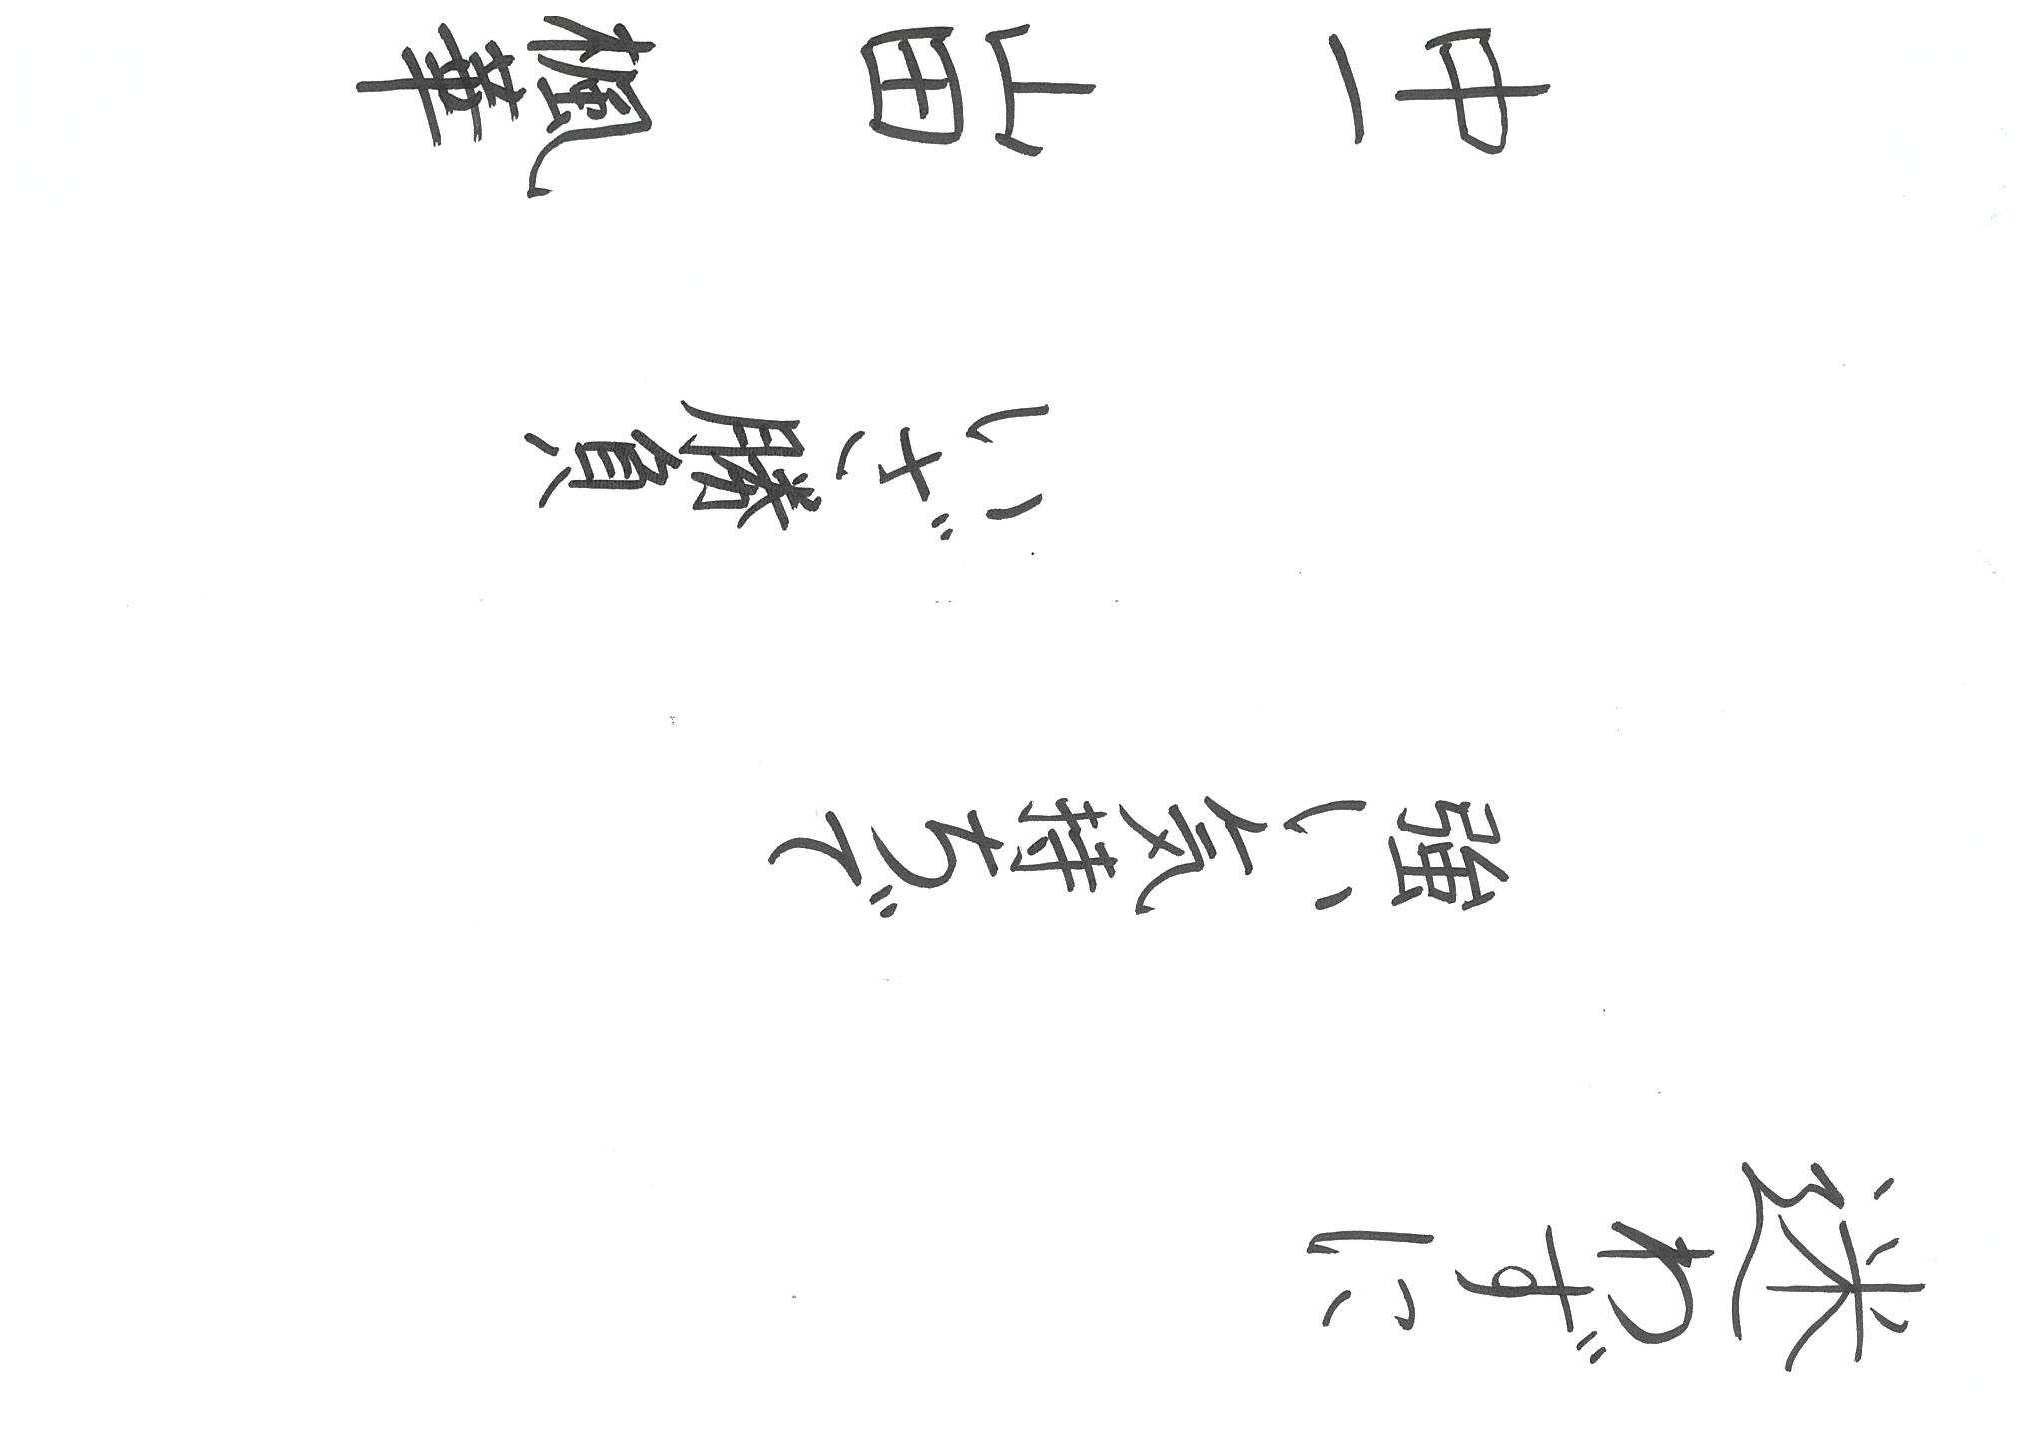 迷わずに
強い気持ちで
いざ勝負
中一 山田 楓華